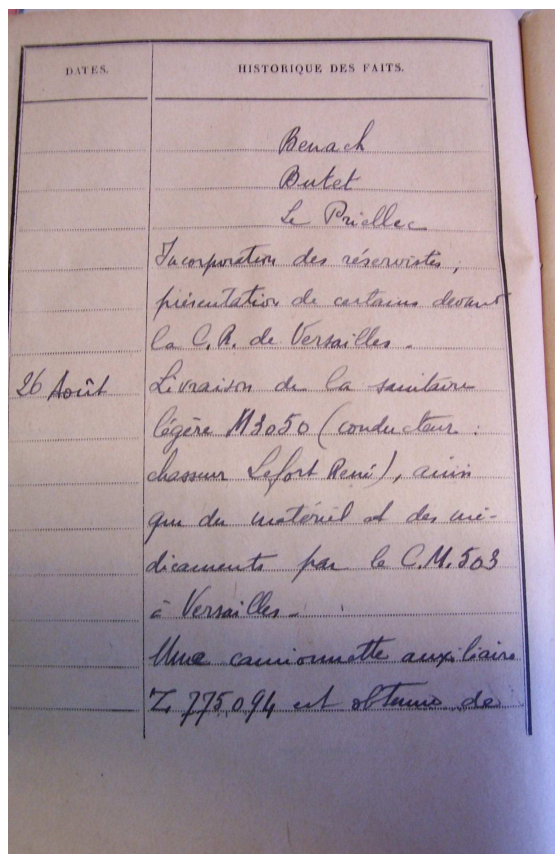 DATES.
HISTORIQUE DES FAITS.
Benach
Butet
Le Priellec
Incorporation des réservistes ;
présentation de certains devant
la C.R. de Versailles.
26 Août
Livraison de la sanitaire
légère M3050 (conducteur :
chasseur Lefort René), ainsi
que du matériel et des mé-
dicaments par le C.M. 503
à Versailles.
Une camionnette auxiliaire
Z 775.094 est obtenue de